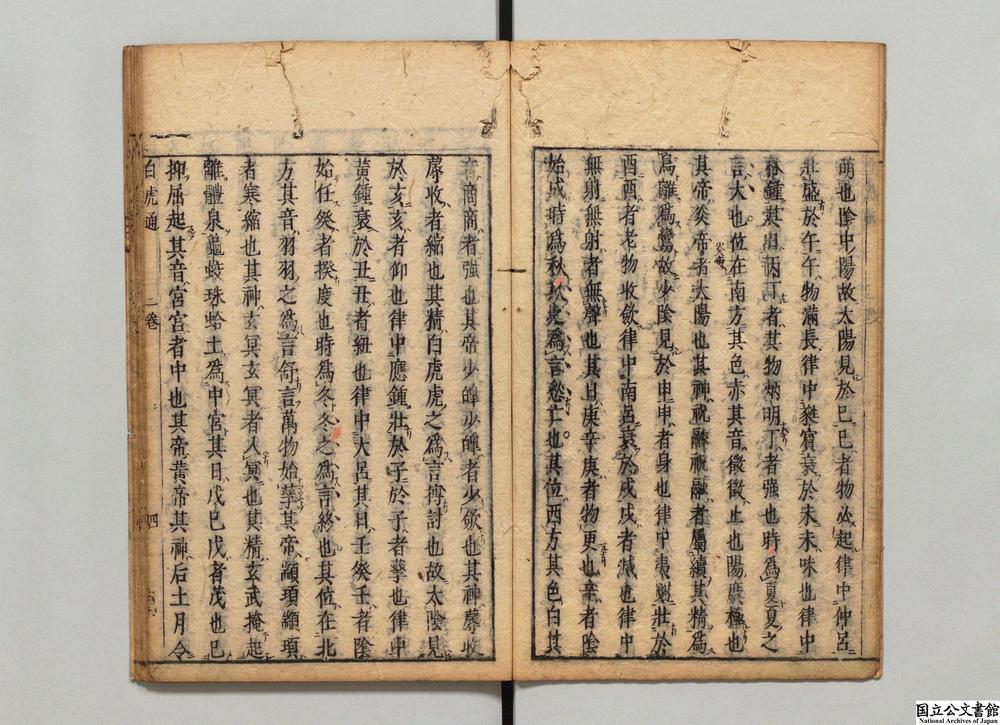 萌也陰中陽故太陽見於巳巳者物必起律中仲呂
壯盛於午午物滿長律中蕤賓衰於未未味也律中
林鍾其日丙丁者其物炳明丁者強也時爲夏夏之
言大也位在南方其色赤其音徵徵止也陽度極也
其帝炎帝者太陽也其神祝融祝融者屬續其精爲
鳥離爲鸞故少陰見於申申者身也律中夷則壯於
酉酉者老物收斂律中南呂衰於戌戌者滅也律中
無射無射者無聲也其日庚辛庚者物更也辛者陰
始成時爲秋秋之爲言愁亡也其位西方其色白其
音商商者強也其帝少皥少皥者少斂也其神蓐收
蓐收者縮也其精白虎虎之爲言摶討也故太陰見
於亥亥者仰也律中應鍾壯於子於子者孳也律中
黃鍾衰於丑丑者紐也律中大呂其日壬癸壬者陰
始任癸者揆度也時爲冬冬之爲言終也其位在北
方其音羽羽之爲言舒言萬物始孳其帝顓頊顓頊
者寒縮也其神玄冥玄冥者入冥也其精玄武掩起
離體泉龜蛟珠蛤土爲中宮其日戊己戊者茂也己
抑屈起其音宮宮者中也其帝黃帝其神后土月令
白虎通 二卷 四
国立公文書館
National Archives of Japan